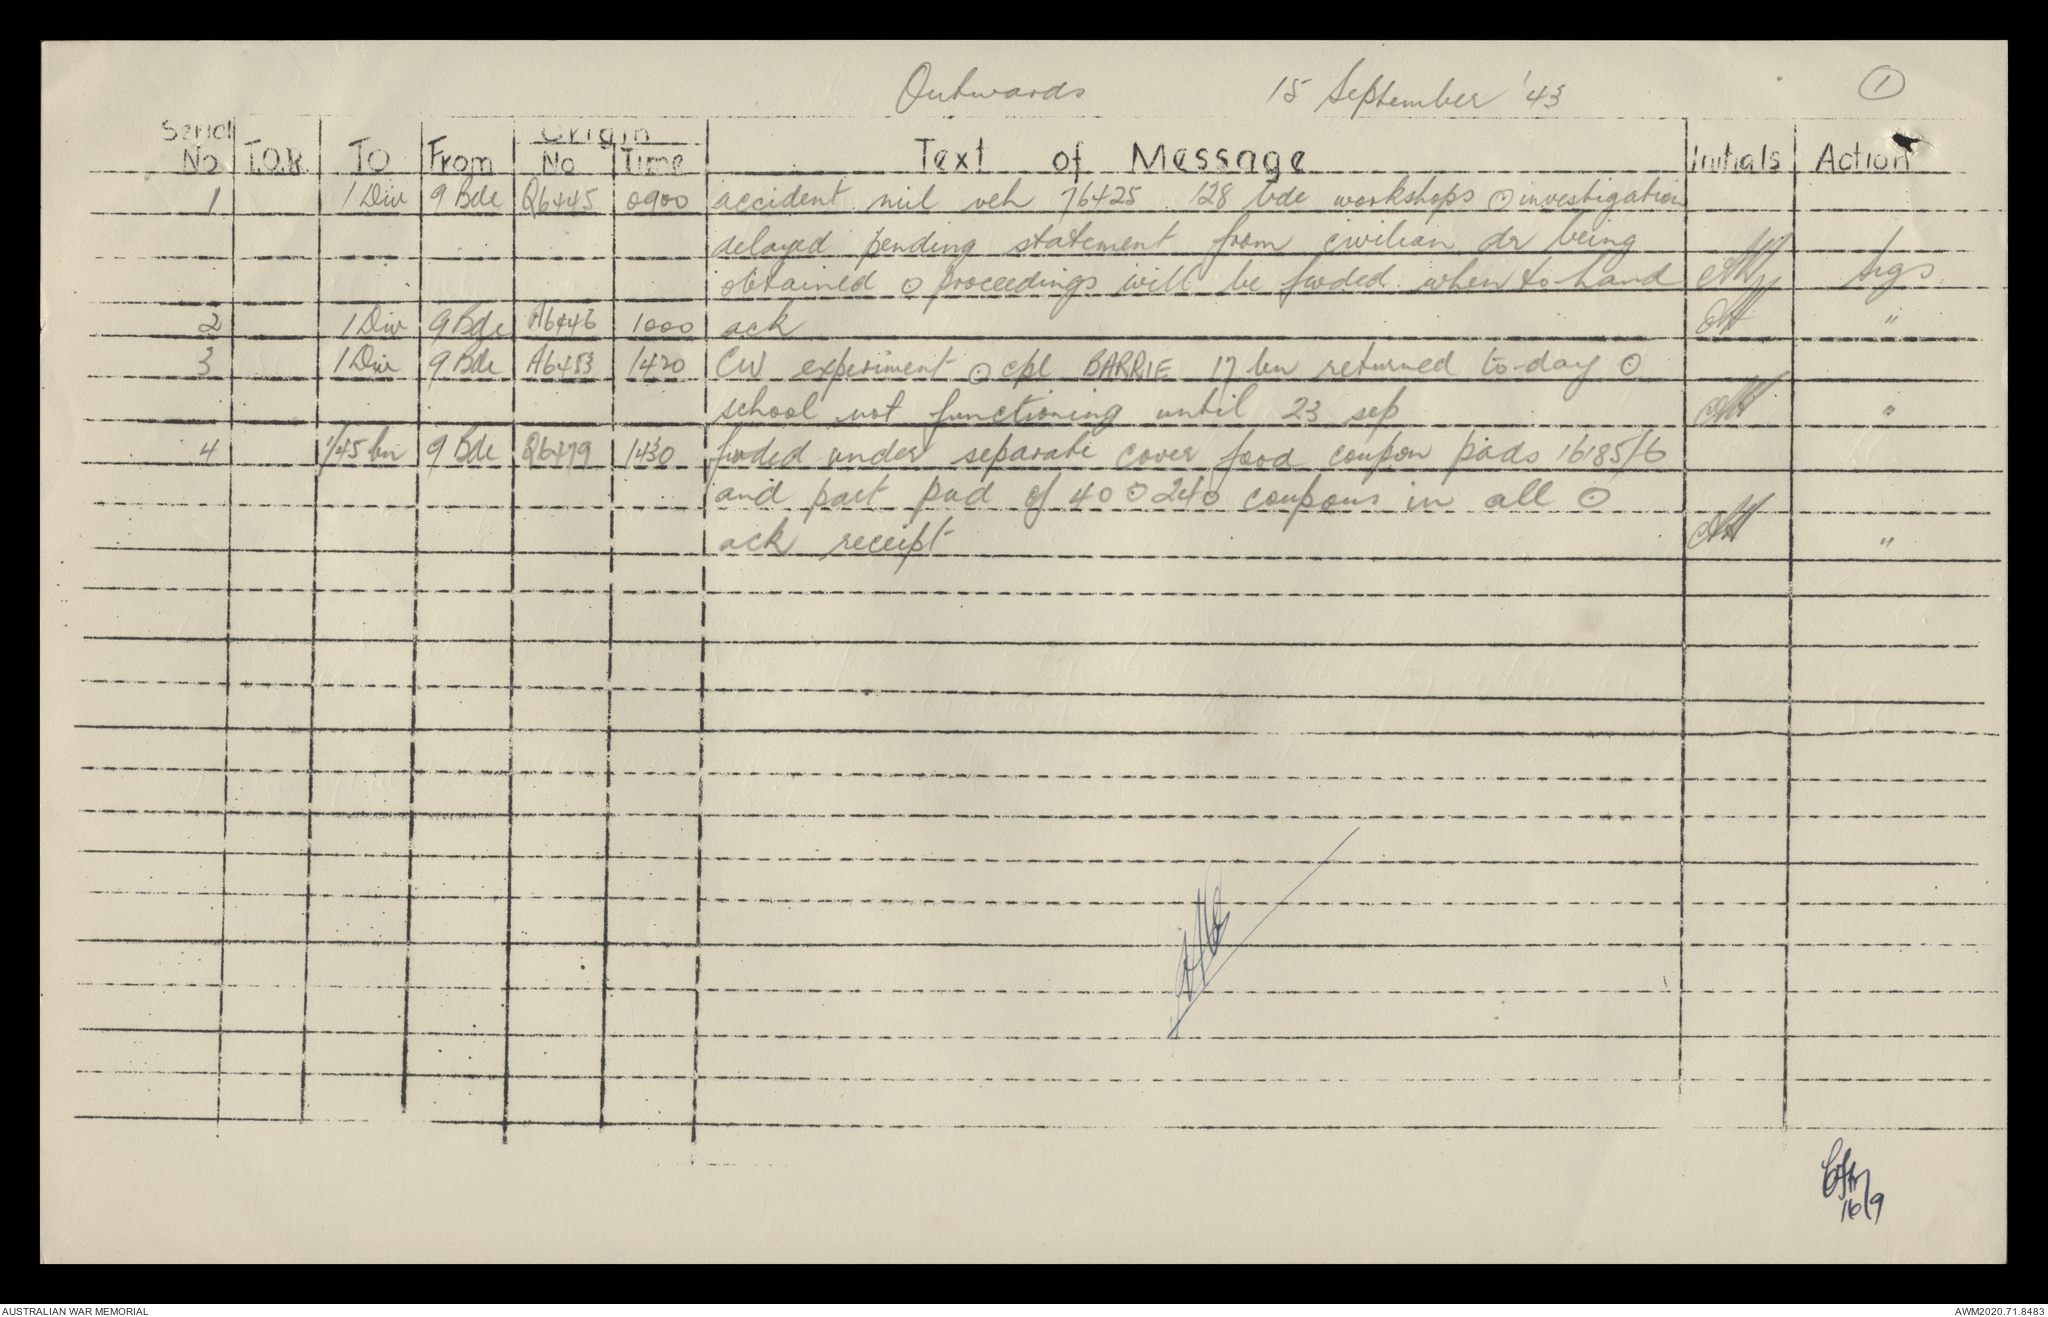 Outwards 15 September '43 1
Serial No T.O.R. TO From Origin No Time Text of Message Initials Action
1 1 Div 9 Bde Q6445 0900 accident mil veh 76425 128 bde workshops ⊙ investigation
delayed pending statement from civilian dr being
obtained ⊙ proceedings will be fwded when to hand Sigs
2 1 Div 9 Bde A6446 1000 ack "
3 1 Div 9 Bde A6453 1420 CW experiment ⊙ cpl BARRIE 17 bn returned to-day ⊙
school not functioning until 23 sep "
4 1/45 bn 9 Bde Q6479 1430 fwded under separate cover food coupon pads 16185/6
and part pad of 40 ⊙ 240 coupons in all ⊙
ack receipt "
16/9
AUSTRALIAN WAR MEMORIAL AWM2020.71.8483